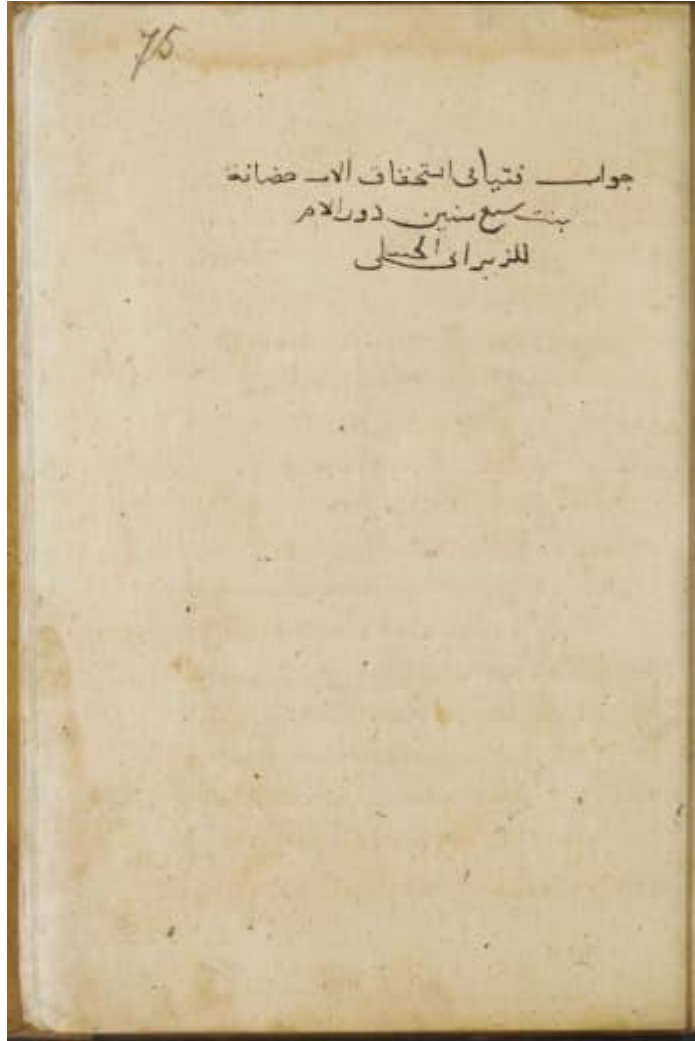 75
جواب فتيا في استحقاق الاب حضانة
بنت سبع سنين دون الام
للزيراني الحنبلي